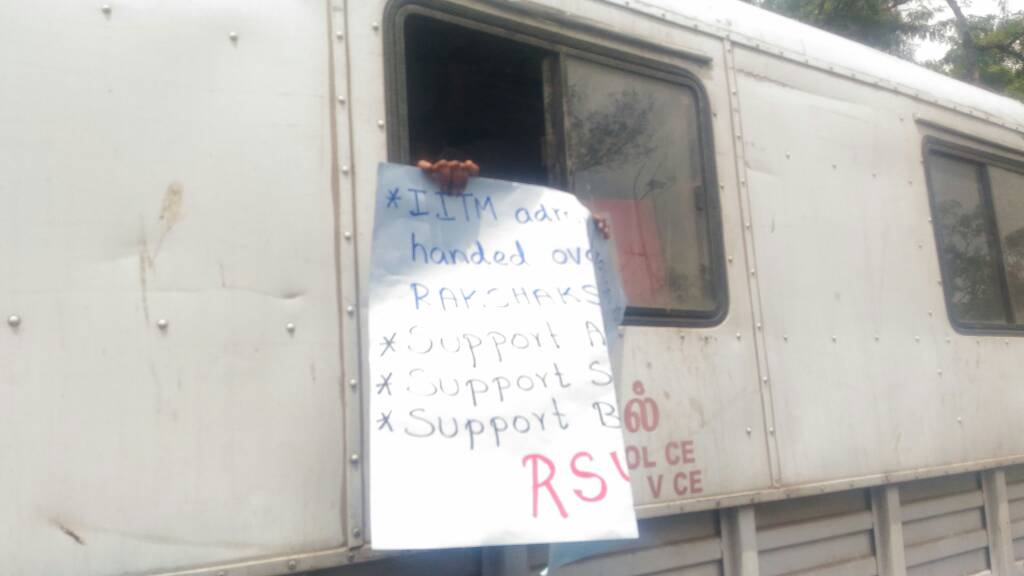 * IITM adm
handed ove
RAKSHAKS
* Support A
* Support S
* Support B
RSY
ல்
OL CE
V CE